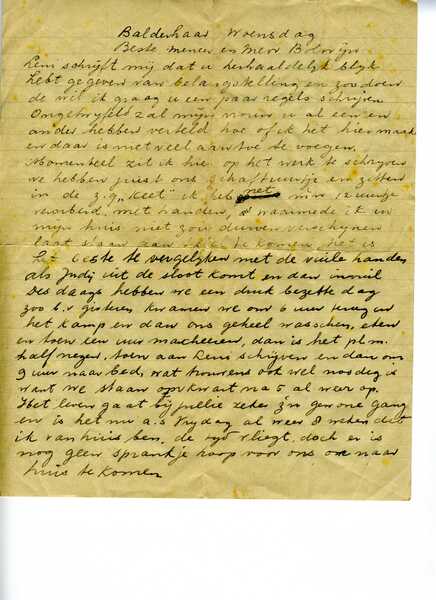 Balderhaar Woensdag
Beste meneer en Mevr Bolwijn
Leni schrijft mij dat u herhaaldelijk blijk
hebt gegeven van belangstelling en zoodoen
de wil ik graag u een paar regels schrijven
Ongetwyfeld zal mijn vrouw u al een en
ander hebben verteld hoe of ik het hier maak
en daar is niet veel aan toe te voegen.
Momenteel zit ik hier op het werk te schrijven
we hebben juist ons schaftuurtje en zitten
in de z.g. "Keet" ik heb net m'n
met handen, waarmede ik in
mijn huis niet zou durven verschijnen
laat staan aan tafel te komen, het is
het beste te vergelyken met de vuile handen
als Judy uit de sloot komt en dan
Des daags hebben we een druk bezette dag
zoo b.v gisteren kwamen we om 6 uur terug in
het kamp en dan ons geheel wasschen, eten
en toen een uur marcheeren, dan is het plm.
half negen. toen aan Leni schrijven en dan om
9 uur naar bed, wat trouwens ook wel nodig is
want we staan om kwart na 5 al weer op.
Het leven gaat bij jullie zeker z'n gewone gang
en is het nu a.s Vrydag al weer 8 weken dat
ik van huis ben. de tyd vliegt, doch er is
nog geen sprankje hoop voor ons om naar
huis te komen